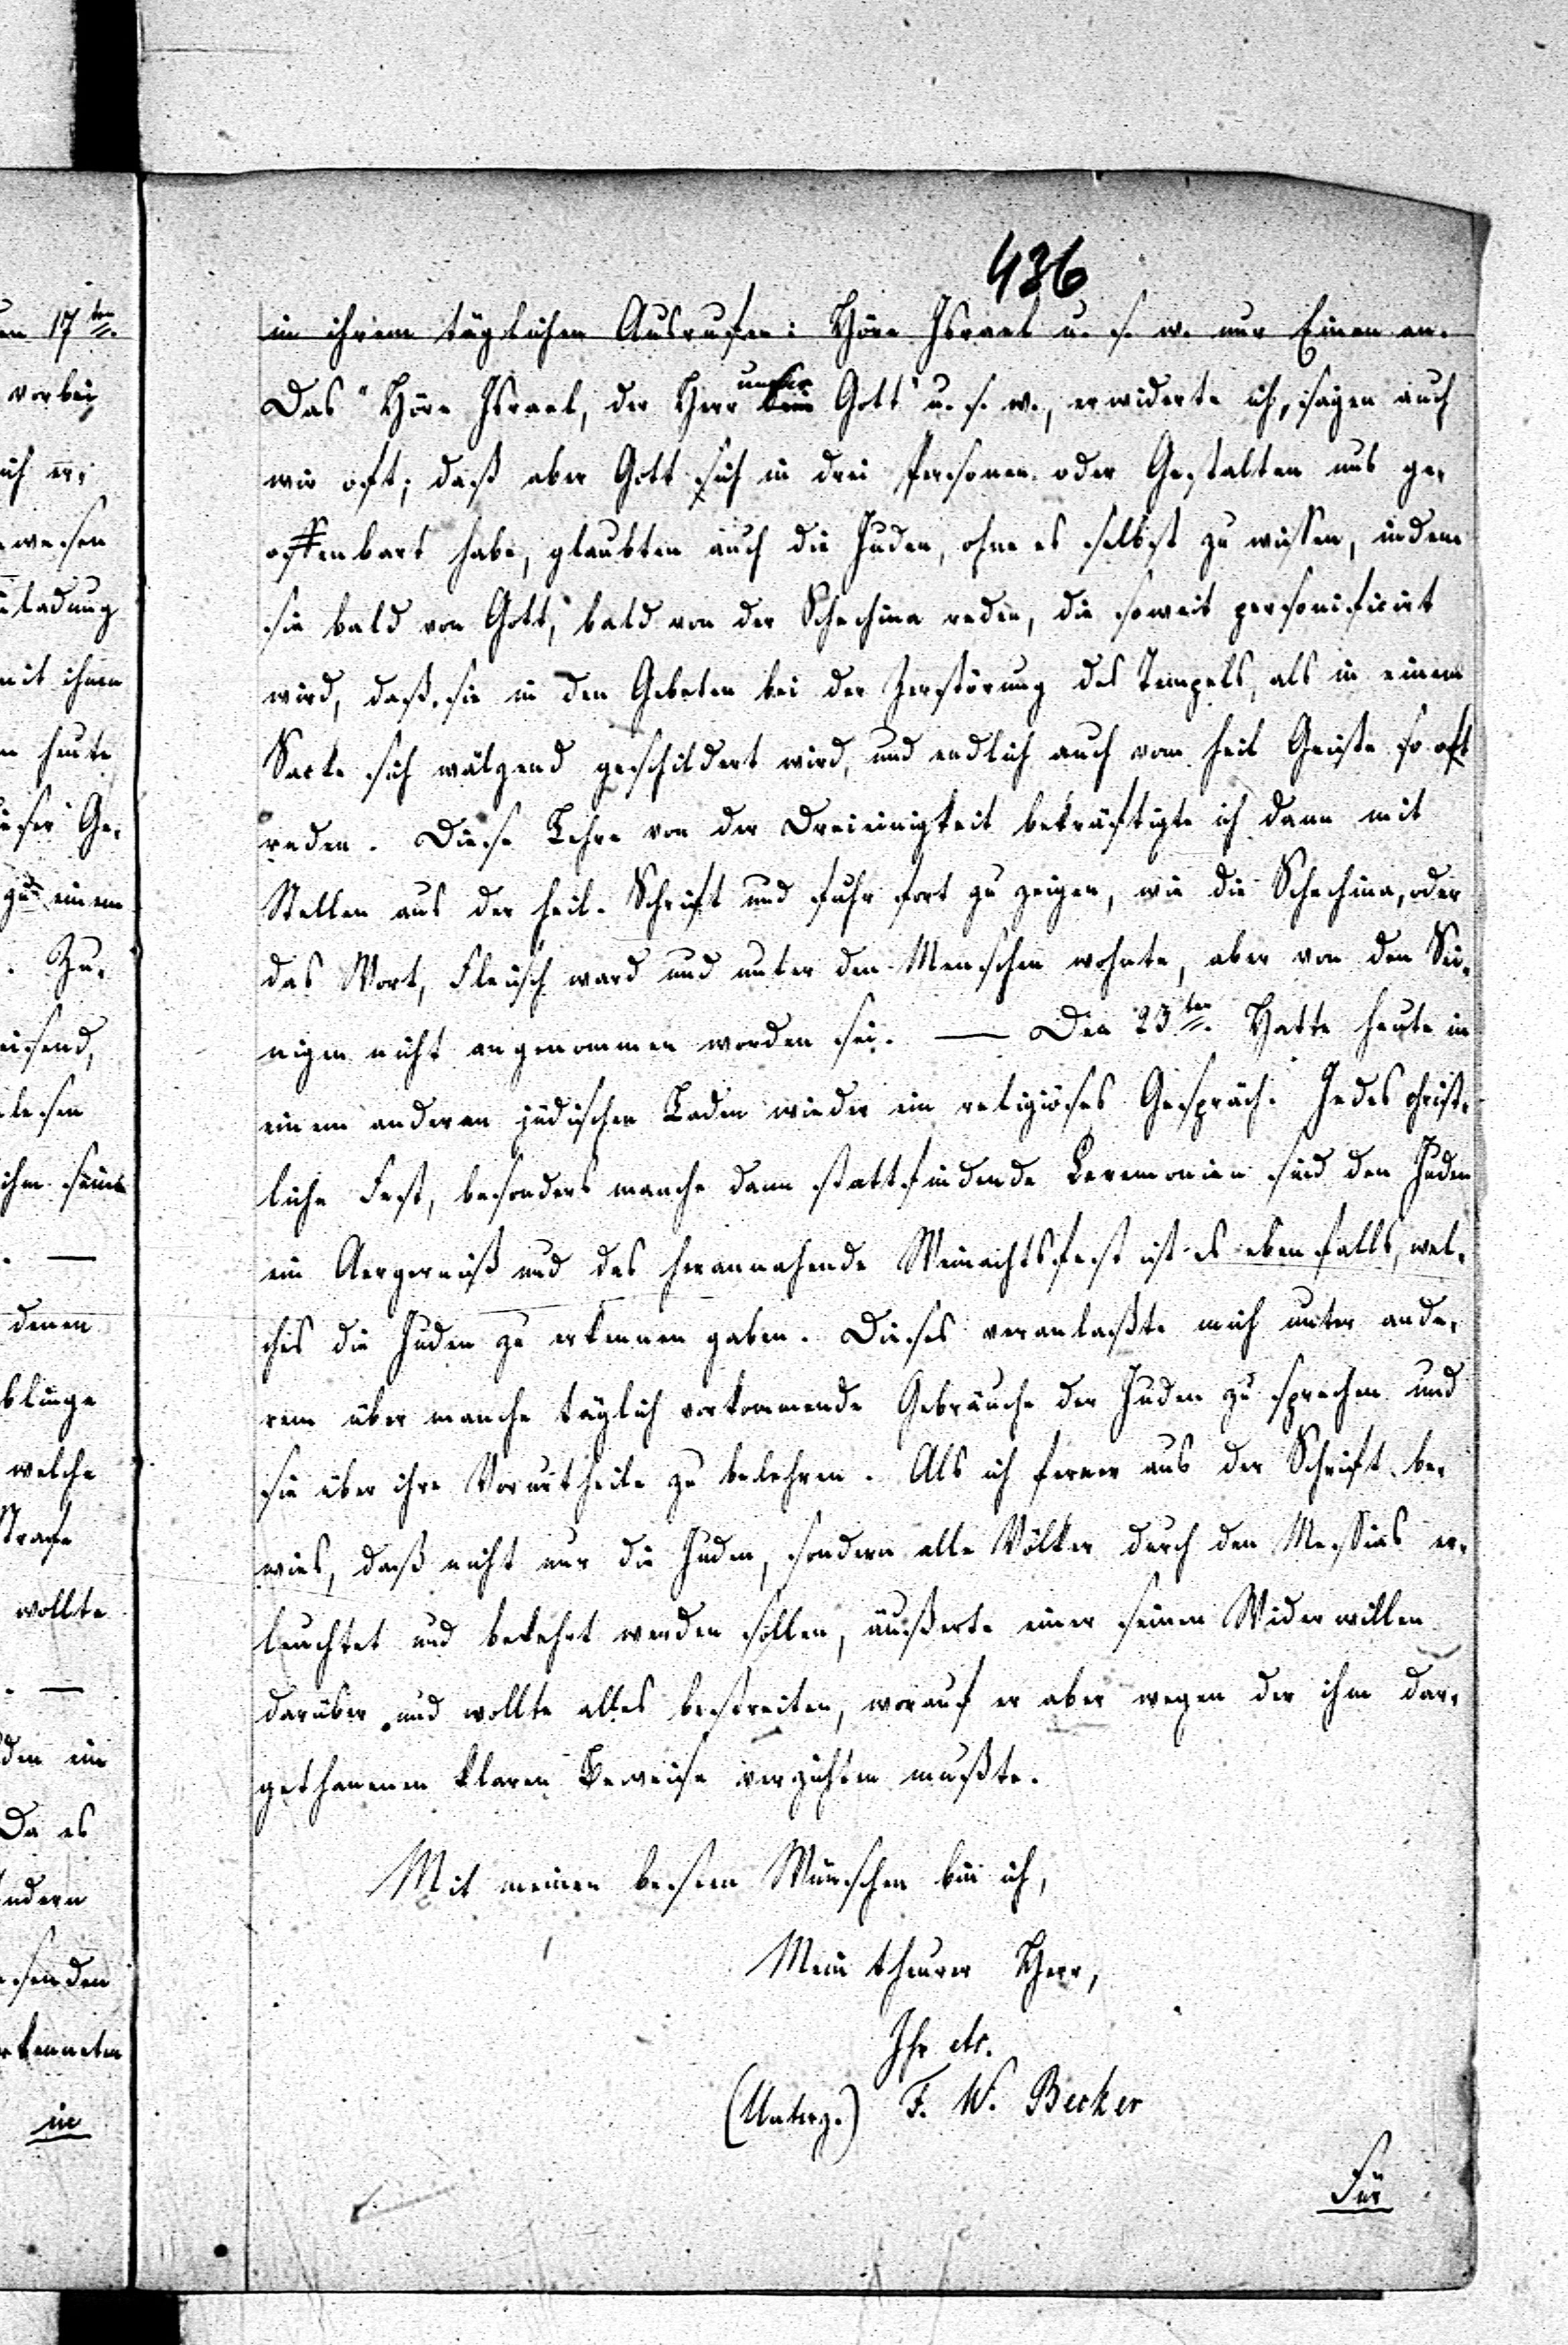 436
in ihrem täglichen Ausrufen: Höre Israel u. s. w. nur Einen an.
Das "Höre Israel, der Herr unser Gott" u. s. w., erwiderte ich, sagen auch
wir oft; daß aber Gott sich in drei Personen oder Gestalten uns ge-
offenbart habe, glaubten auch die Juden, ohne es selbst zu wissen, indem
sie bald von Gott, bald von der Schechina reden, die soweit personificirt
wird, daß sie in den Gebeten bei der Zerstörung des Tempels, als in einem
Sacke sich wälzend geschildert wird, und endlich auch vom heil Geiste so oft
reden. Diese Lehre von der Dreieinigkeit bekräftigte ich dann mit
Stellen aus der heil. Schrift und fuhr fort zu zeigen, wie die Schechina, oder
das Wort, Fleisch ward und unter den Menschen wohnte, aber von den Sei-
nigen nicht angenommen worden sei. — Den 23ten Hatte heute in
einem anderen jüdischen Laden wieder ein religiöses Gespräch. Jedes christ-
liche Fest, besonders manche dann stattfindende Ceremonien sind den Juden
ein Aergerniß und das herannahende Weinachtsfest ist es ebenfalls, wel-
ches die Juden zu erkennen gaben. Dieses veranlaßte mich unter ande-
rem über manche täglich vorkommende Gebräuche der Juden zu sprechen und
sie über ihre Vorurtheile zu belehren. Als ich ferner aus der Schrift be-
wies, daß nicht nur die Juden, sondern alle Völker durch den Messias er-
leuchtet und bekehrt werden sollen, äußerte einer seinen Widerwillen
darüber und wollte alles bestreiten, worauf er aber wegen der ihm dar-
gethanenen klaren Beweise verzichten mußte.
Mit meinen besten Wünschen bin ich,
Mein theurer Herr,
Ihr etc.
(Unterz.) F. W. Becker
Für
en 17ten
vorbei
ich er-
wesen
ladung
mit ihnen
n heute
ieser Ge-
zu einem
. Zu-
eisend,
lesen
ihm seine
. —
denen
blinge
welche
Strafe
wollte
. —
den ein
Da es
ndern
senden
kennten
in